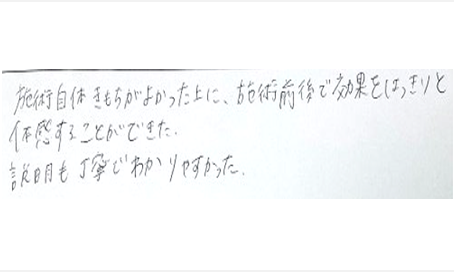 施術自体きもちがよかった上に、施術前後で効果をはっきりと
体感することができた.
説明も丁寧でわかりやすかった.